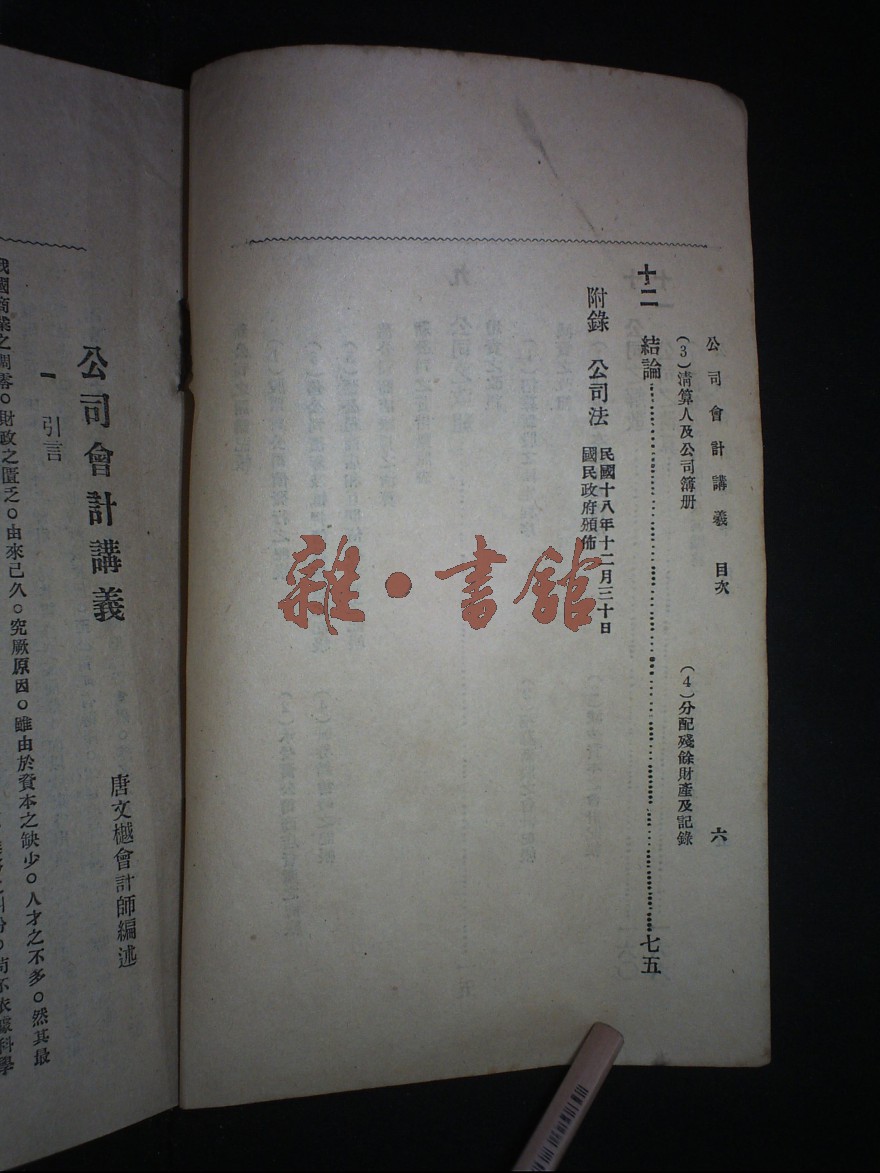 公司會計講義　目次　六
(3)清算人及公司簿册　(4)分配殘餘財產及記錄
十二　結論……七五
附錄　公司法
民國十八年十二月三十日
國民政府頒佈
雜·書館
唐文樾會計師編述
公司會計講義
一　引言
我國商業之凋零。財政之匱乏。由來已久。究厥原因。雖由於資本之缺少。人才之不多。然其最
苟不依據科學